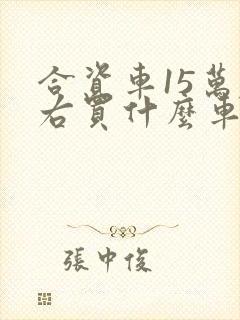 合資車15萬
右買什麼車
張中俊